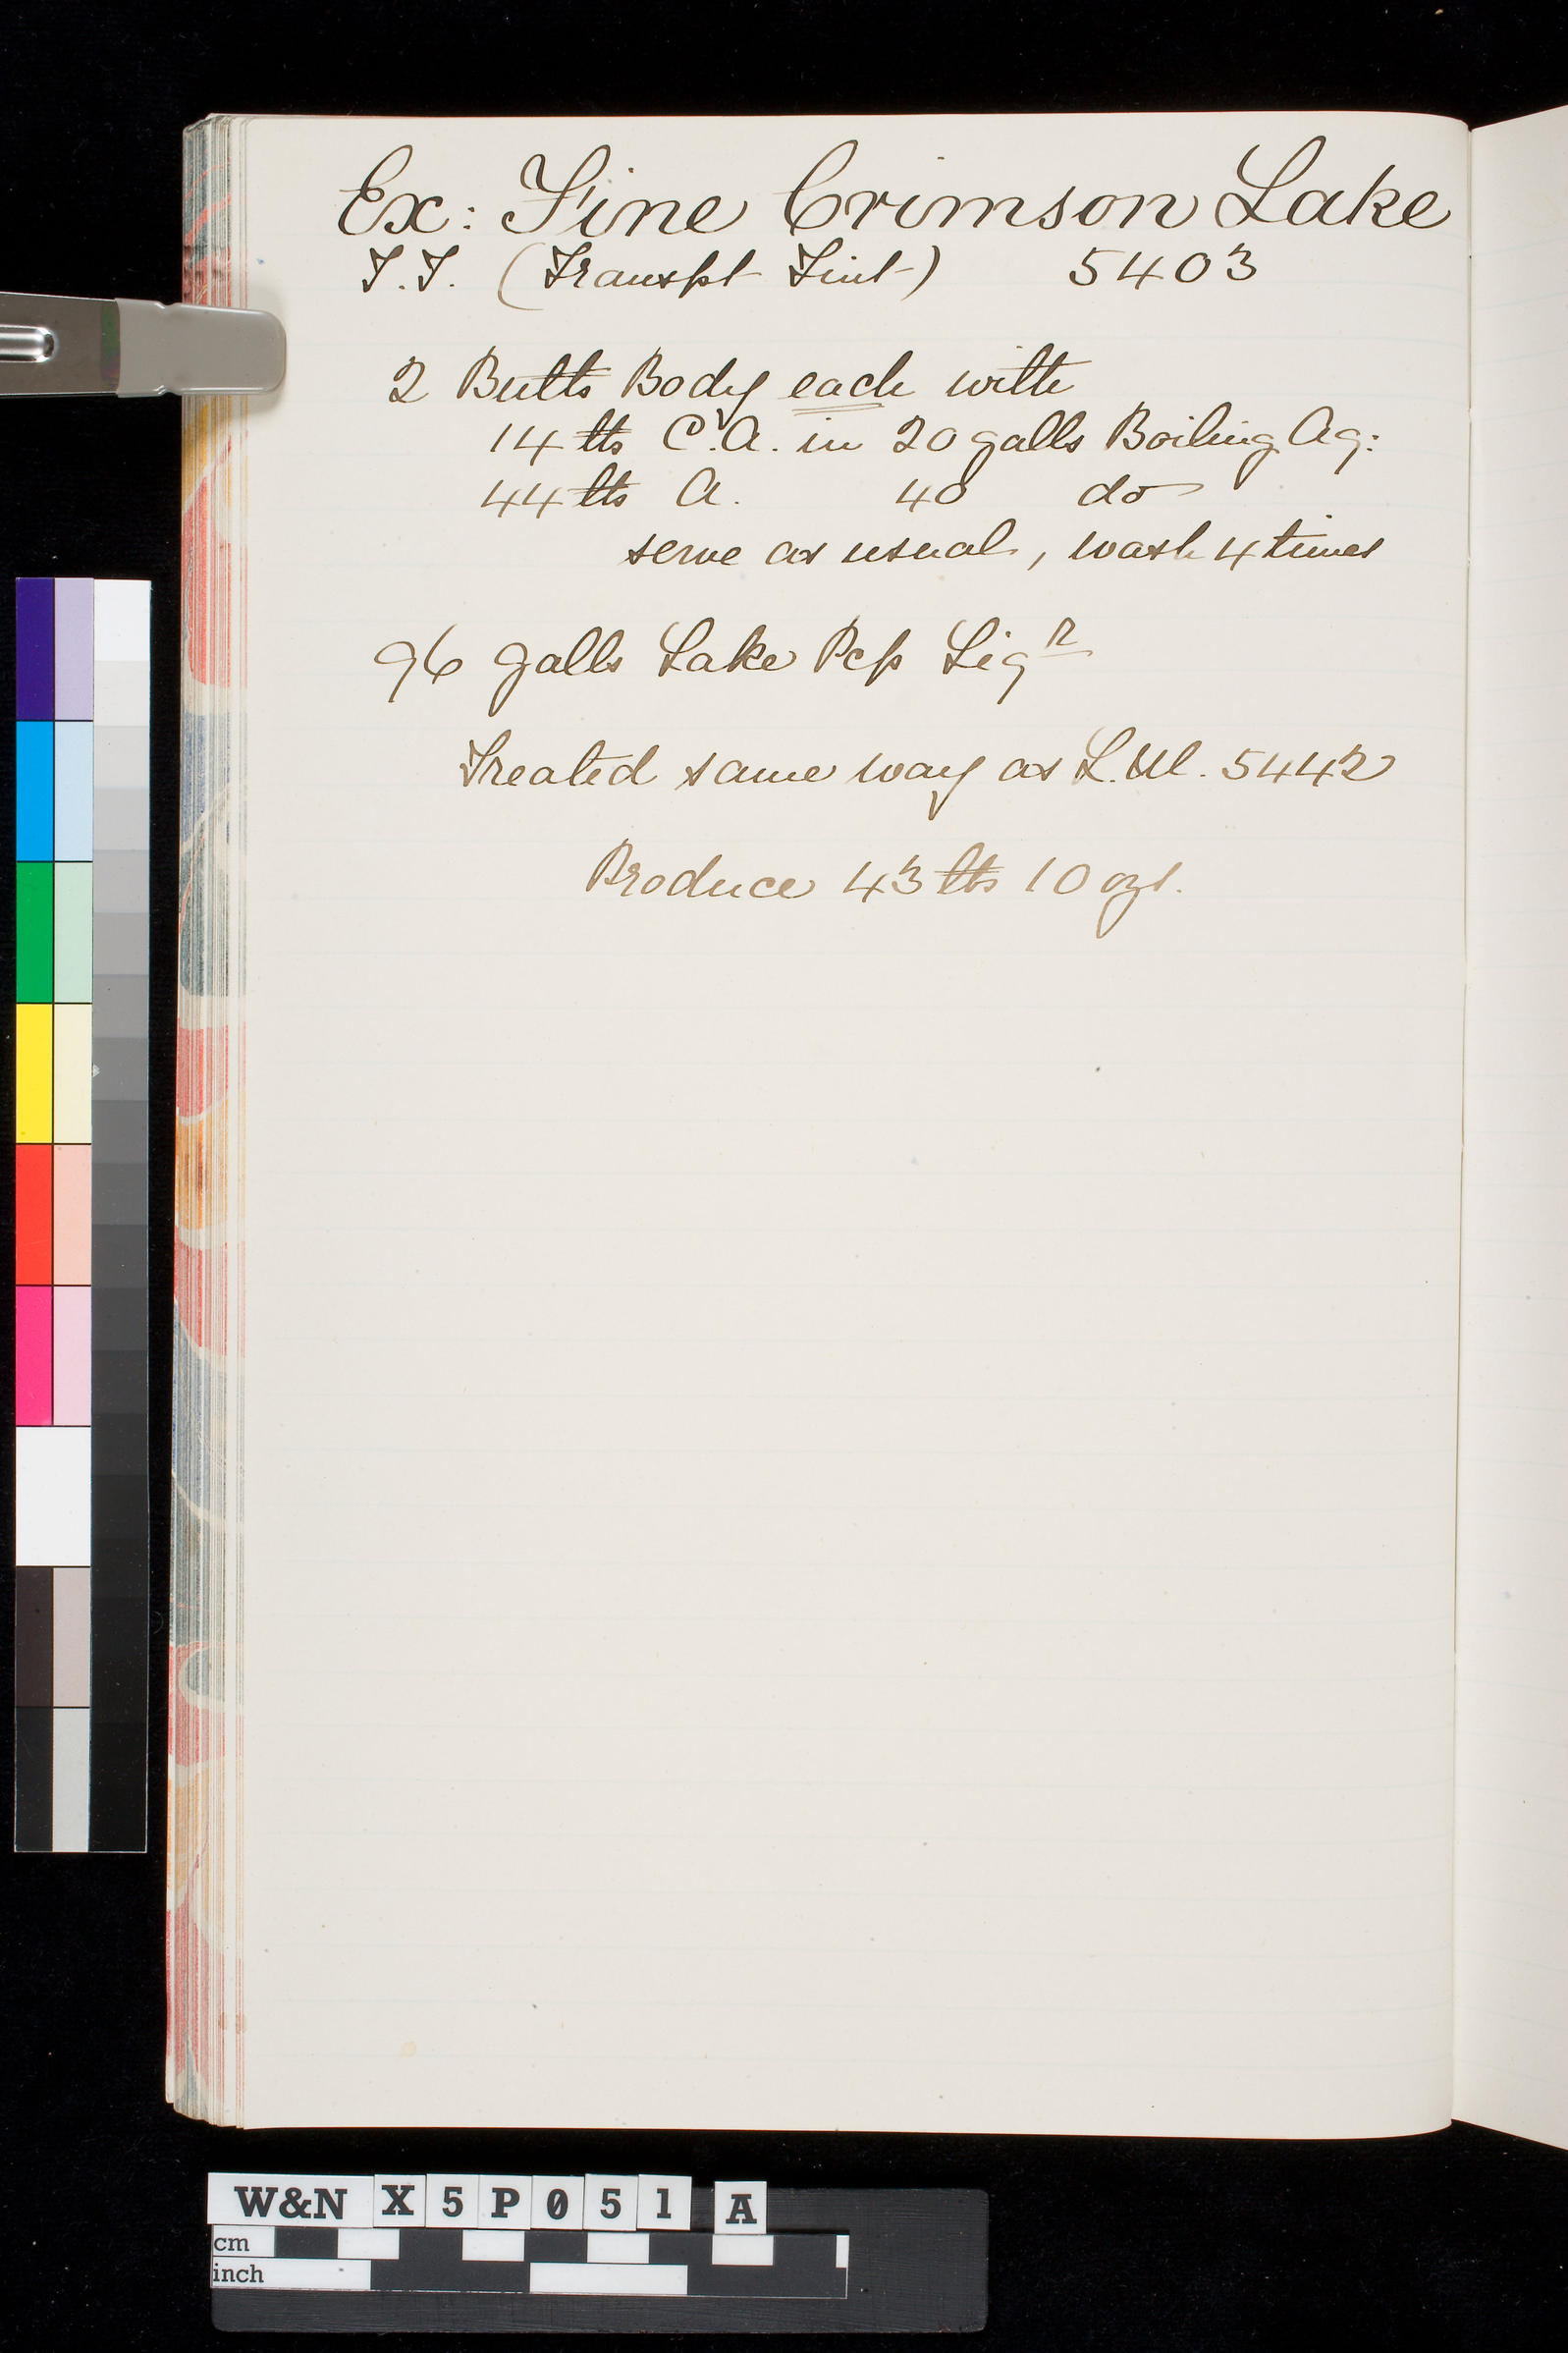 Ex: Fine Crimson Lake
T.T. (Transpt Tint) 5403
2 Butts Body each with
14 lbs C.A. in 20 galls Boiling Aq:
44 lbs A. 40 do
serve as usual, wash 4 times
96 galls Lake Pcp Liqr
Treated same way as L.M. 5442
Produce 43 lbs 10 ozs.
W&N X5P051 A
cm
inch